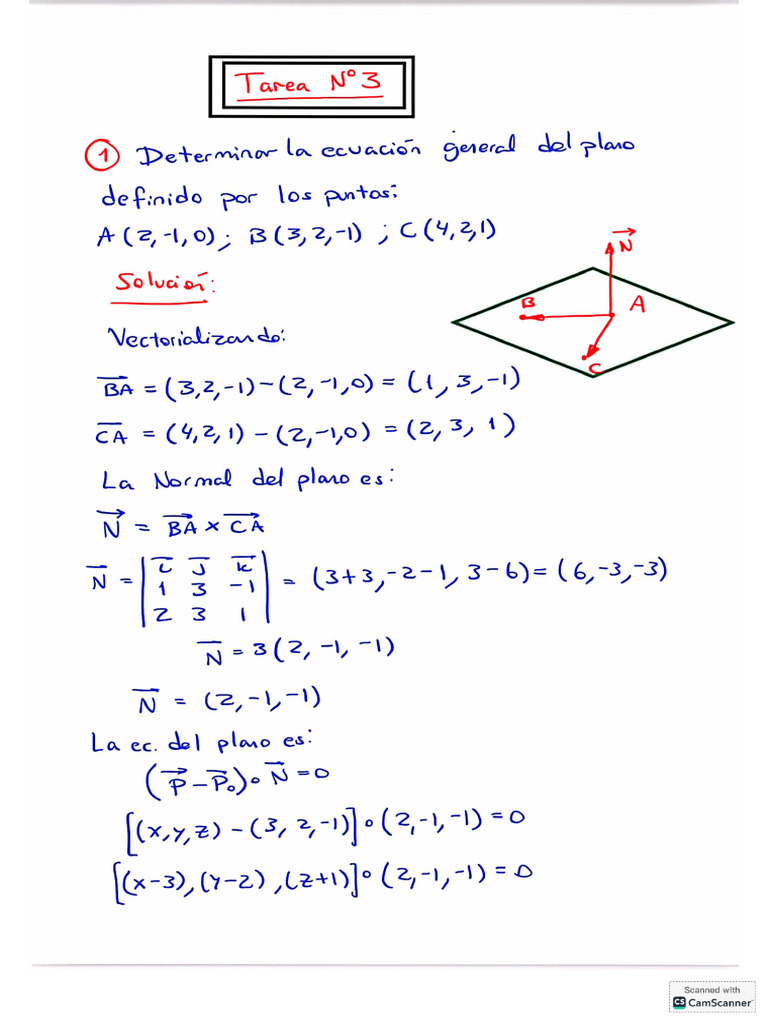 Tarea N°3
① Determinar la ecuación general del plano
definido por los puntos:
A(2,-1,0); B(3,2,-1) ; C(4,2,1)
Solución:
N
B
A
C
Vectorializando:
BA = (3,2,-1)-(2,-1,0) = (1, 3, -1)
CA = (4,2,1) - (2,-1,0) = (2, 3, 1)
La Normal del plano es:
N = BA × CA
N = | i j k | = (3+3,-2-1, 3-6) = (6,-3,-3)
1 3 -1
2 3 1
N = 3(2, -1, -1)
N = (2,-1,-1)
La ec. del plano es:
(P-P₀)∘N=0
[(x,y,z) - (3, 2,-1)]∘(2,-1,-1) = 0
[(x-3),(y-2),(z+1)]∘(2,-1,-1) = 0
Scanned with
CS CamScanner